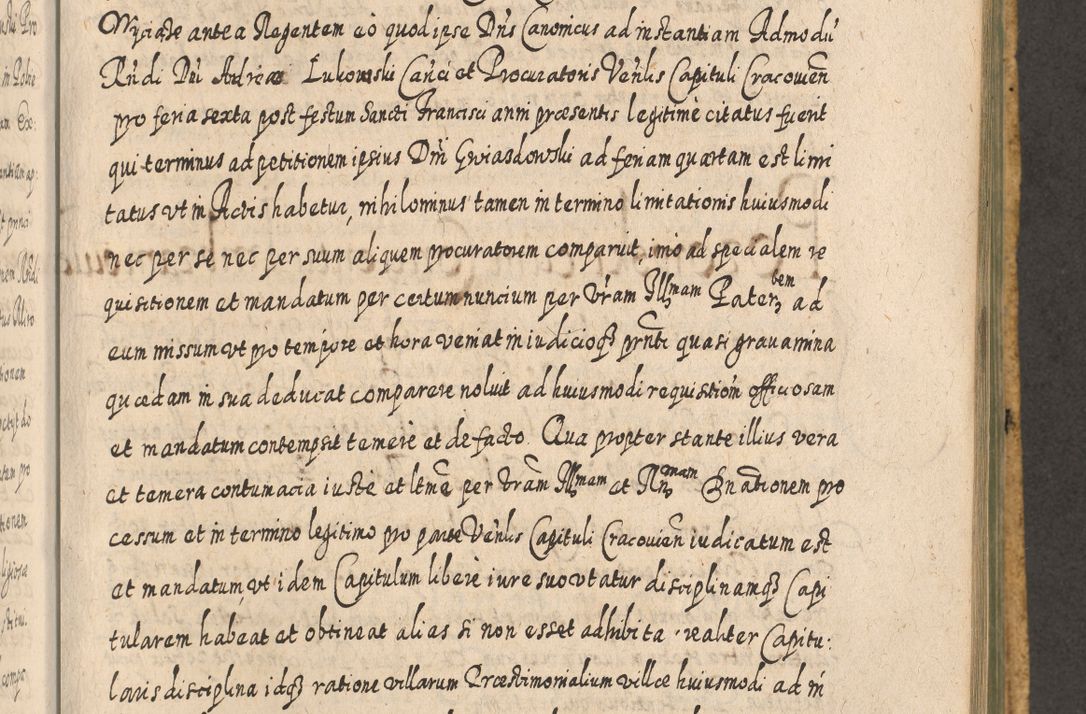 Myciate antea Regentem eò quod ipse Dn̄s Canonicus ad instantiam Admodū
Rn̄di Dn̄i Andreæ Lukowski Can̄ci et Procuratoris Ven̄lis Capituli Cracovien̄
pro feria sexta post festum Sancti Francisci anni præsentis legitimè citatus fuerit
qui terminus ad petitionem ipsius Dn̄i Gwiasdowski ad feriam quartam est limi
tatus vt in Actis habetur, nihilominus tamen in termino limitationis huiusmodi
nec per se nec per suum aliquem procuratorem comparuit, imò ad specialem re
quisitionem et mandatum per certum nuncium per Vr̄am Illmam Paterntem ad
eum missum vt pro tempore et hora veniat in iudicioq3 prn̄ti quasi gravamina
quædam in sua deducat comparere noluit ad huiusmodi requistiōm officiosam
et mandatum contempsit temerè et de facto. Qua propter stante illius vera
et temera contumacia iustè et ltm̄e per Vram̄ Illmam et Rn̄mam Dn̄ationem pro
cessum et in termino legitimo pro parte Ven̄lis Capituli Cracovien̄ iudicatum est
et mandatum, vt idem Capitulum liberè iure suo vtatur disciplinamq3 Capi
tularem habeat et obtineat alias si non esset adhibita realiter Capitu:
laris disciplina idq3 ratione villarum Præstimonialium villæ huiusmodi ad in